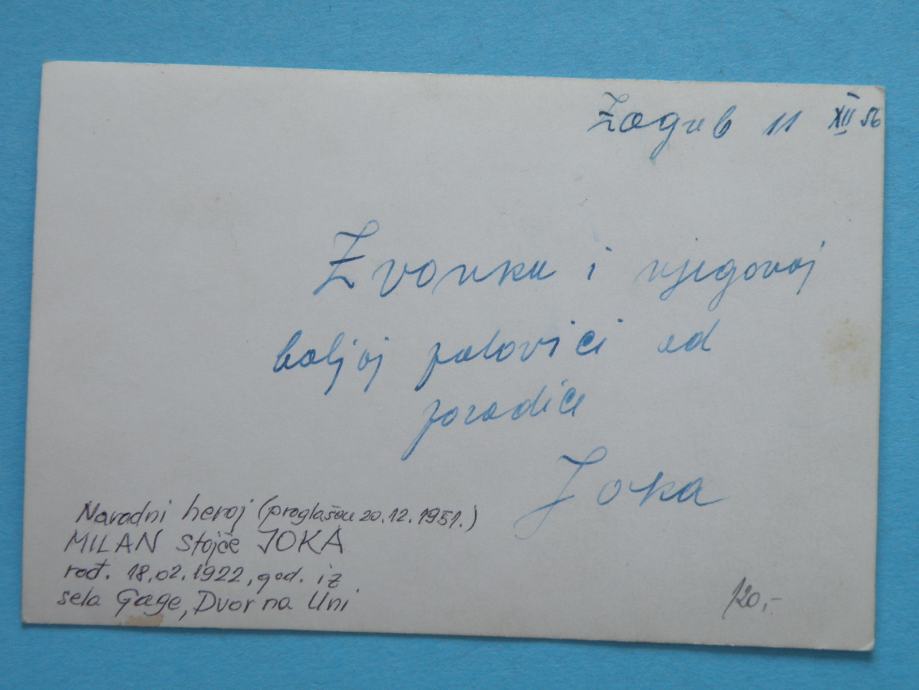 Zagreb 11 XII 56
Zvonku i njegovoj
boljoj polovici od
porodice
Joka
Narodni heroj (proglašen 20.12.1951.)
MILAN Stojče JOKA
rođ. 18.02.1922, god. iz
sela Gage, Dvor na Uni
120,-